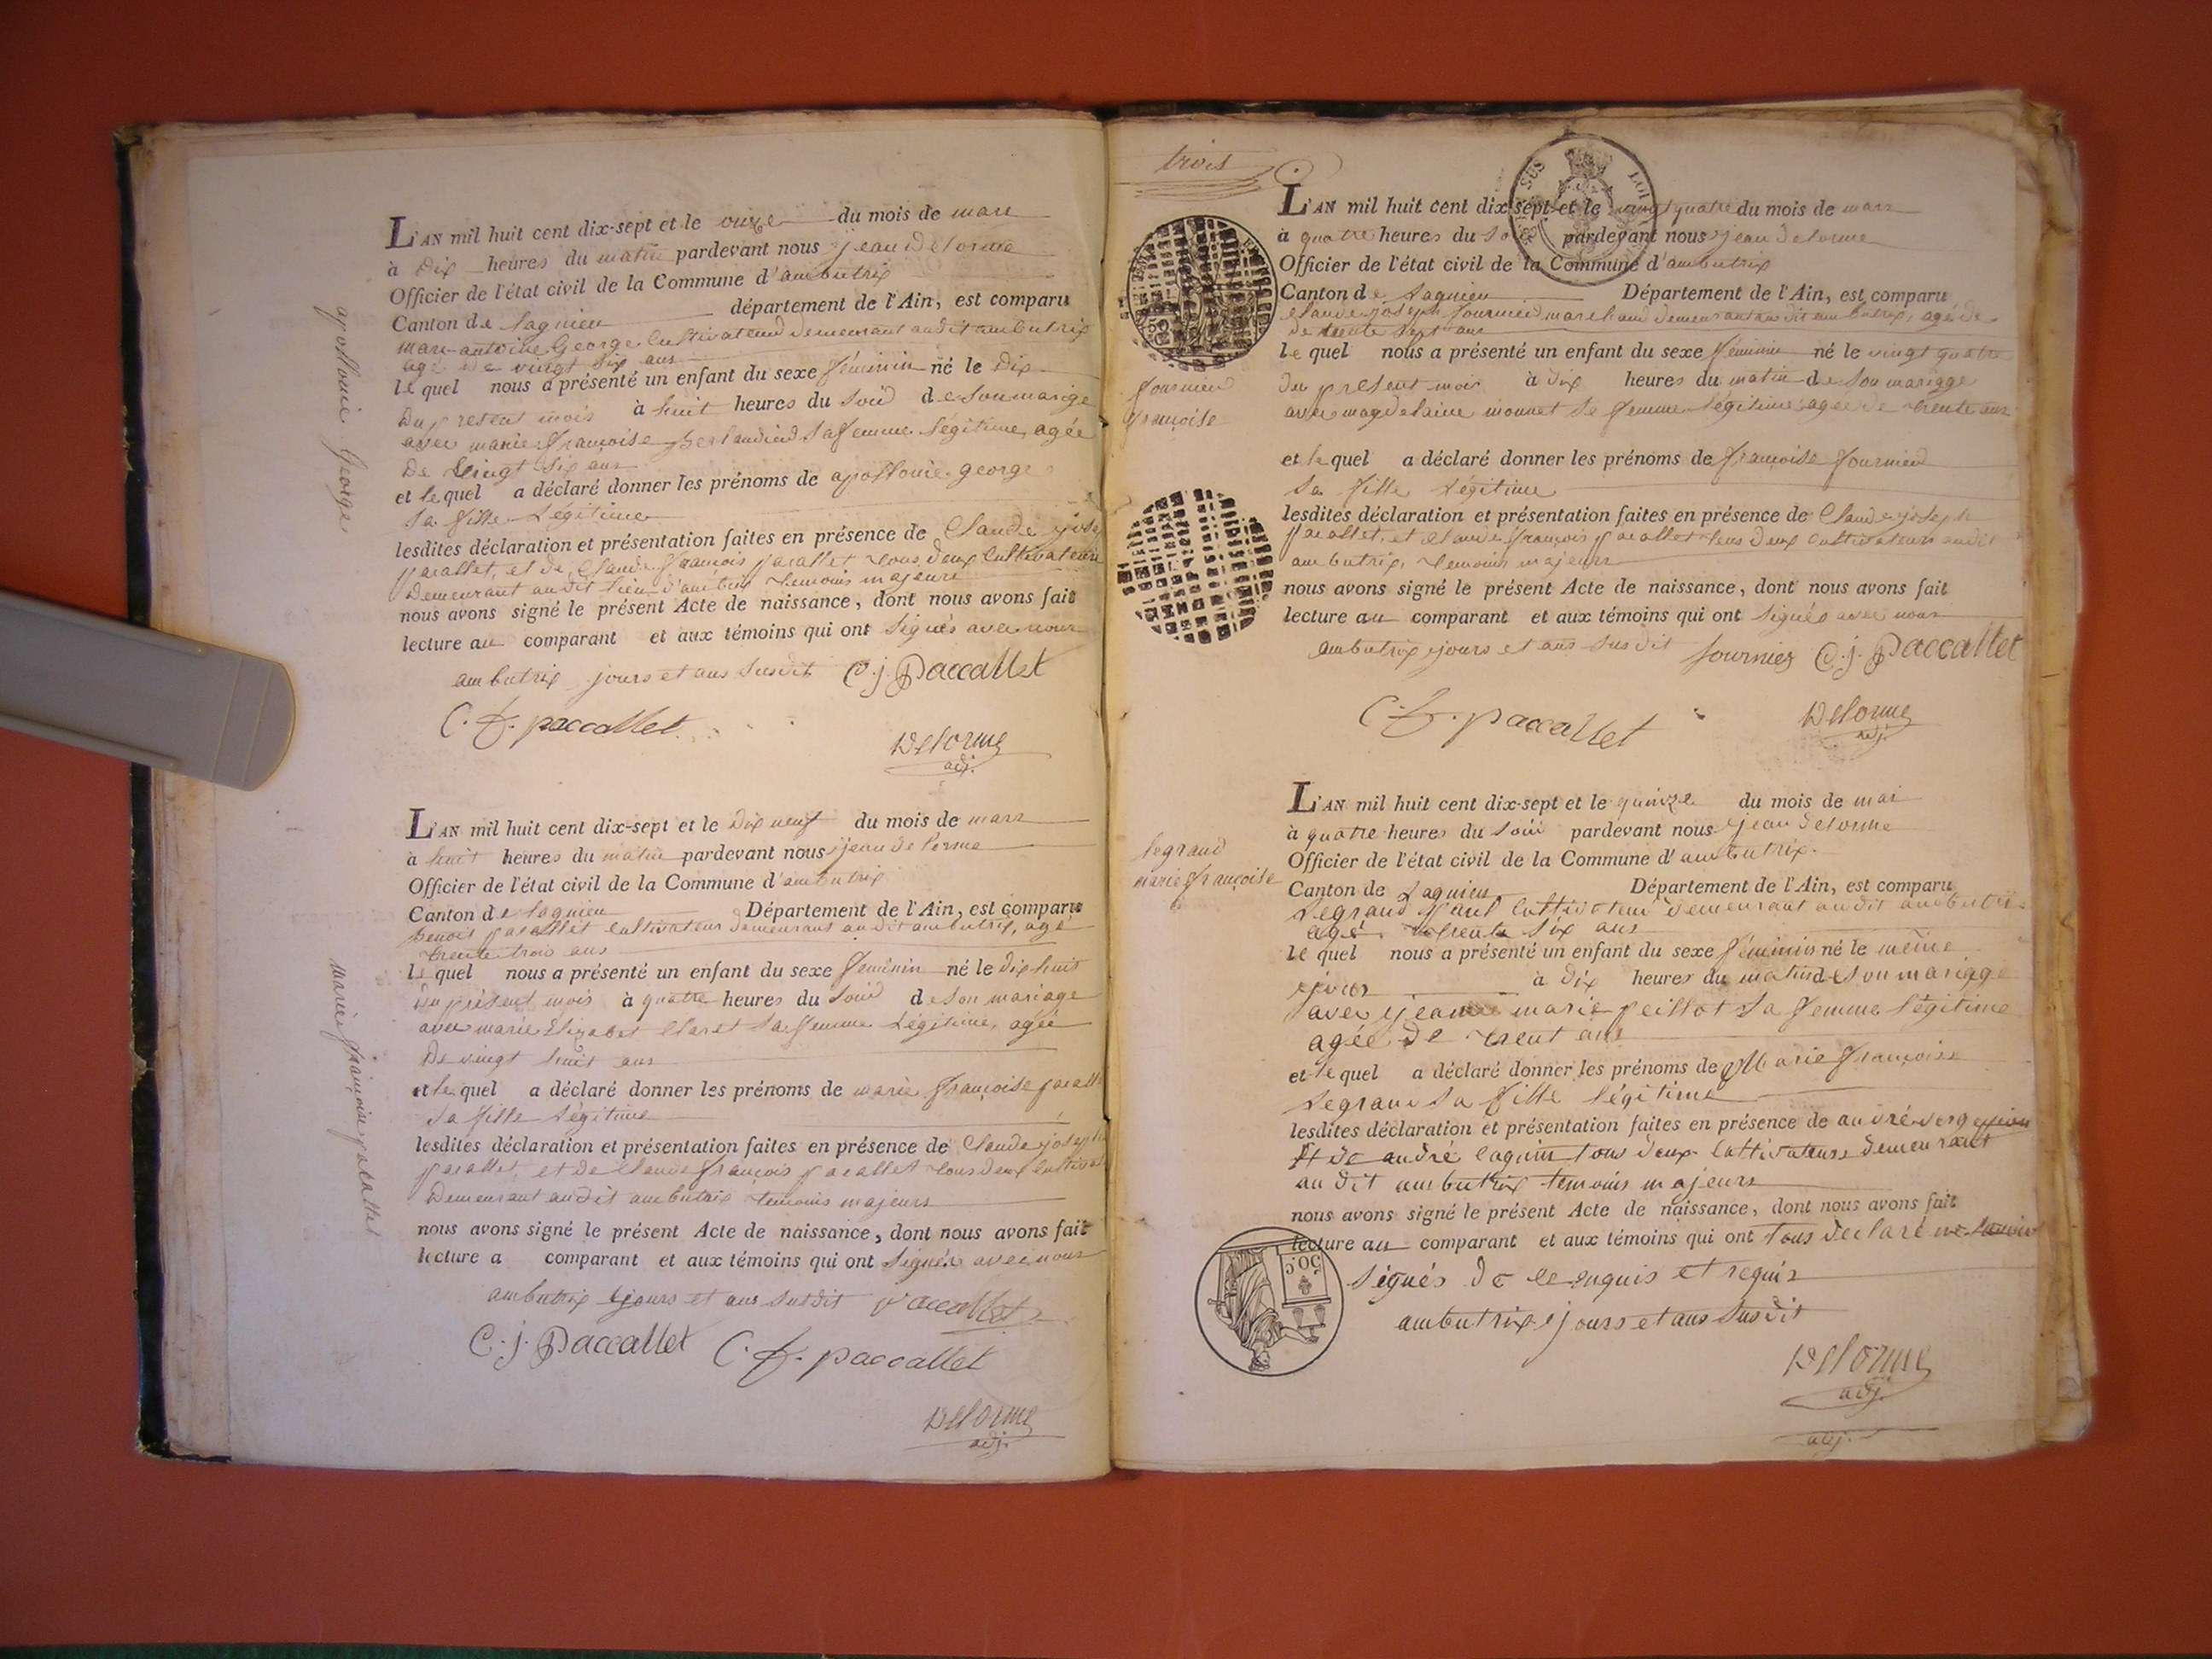 apollonie George
L'AN mil huit cent dix-sept et le onze du mois de mars
à dix heures du matin pardevant nous jean Delorme
Officier de l'état civil de la Commune d'ambutrix
Canton de Lagnieu département de l'Ain, est comparu
marc antoine George Cultivateur demeurant audit ambutrix
agé de vingt six ans
le quel nous a présenté un enfant du sexe féminin né le dix
du present mois à huit heures du soir de son mariage
avec marie françoise sa femme légitime, agée
de vingt six ans
et le quel a déclaré donner les prénoms de apollonie george
sa fille Légitime
lesdites déclaration et présentation faites en présence de Claude jose
pacallet, et de Claude françois pacallet tous deux Cultivateurs
Demeurant audit lieu d'ambutrix temoins majeurs
nous avons signé le présent Acte de naissance, dont nous avons fait
lecture au comparant et aux témoins qui ont signés avec nous
ambutrix jours et ans susdit C. j. Paccallet
C. f. paccallet
Delorme
adj.
marie françoise pacallet
L'AN mil huit cent dix-sept et le dix neuf du mois de mars
à huit heures du matin pardevant nous jean de lorme
Officier de l'état civil de la Commune d'ambutrix
Canton de Lagnieu Département de l'Ain, est comparu
benoit pacallet cultivateur demeurant audit ambutrix, agé
trente trois ans
le quel nous a présenté un enfant du sexe feminin né le dix huit
du présent mois à quatre heures du soir de son mariage
avec marie Elizabet Claret sa femme Légitime, agée
de vingt huit ans
et le quel a déclaré donner les prénoms de marie françoise pacalle
sa fille Légitime
lesdites déclaration et présentation faites en présence de Claude joseph
pacallet, et de Claude françois pacallet tous deux Cultivat
Demeurant audit ambutrix temoins majeurs
nous avons signé le présent Acte de naissance, dont nous avons fait
lecture a comparant et aux témoins qui ont signés avec nous
ambutrix jours et ans susdit Paccallet
C. j. Paccallet C. f. paccallet
Delorme
adj.
trois
fournier
françoise
L'AN mil huit cent dix-sept et le vingt quatre du mois de mars
à quatre heures du soir pardevant nous jean Delorme
Officier de l'état civil de la Commune d'ambutrix
Canton de Lagnieu Département de l'Ain, est comparu
Claude joseph fournier marchand demeurant audit ambutrix, agé de
de trente sept ans
le quel nous a présenté un enfant du sexe féminin né le vingt quatre
du present mois à dix heures du matin de son mariage
avec magdelaine monnet se femme légitime agée de trente ans
et le quel a déclaré donner les prénoms de françoise fournier
sa fille Légitime
lesdites déclaration et présentation faites en présence de Claude joseph
pacallet, et Claude françois pacallet tous deux cultivateurs audit
ambutrix, temoins majeurs
nous avons signé le présent Acte de naissance, dont nous avons fait
lecture au comparant et aux témoins qui ont signés avec nous
ambutrix jours et ans susdit fournier C. j. Paccallet
C. f. paccallet
Delorme
adj.
legrand
marie françoise
L'AN mil huit cent dix-sept et le quinze du mois de mai
à quatre heures du soir pardevant nous jean delorme
Officier de l'état civil de la Commune d'ambutrix.
Canton de Lagnieu Département de l'Ain, est comparu
Legrand paul Cultivateur demeurant audit ambutrix
agé trente six ans
le quel nous a présenté un enfant du sexe féminin né le même
jour à dix heures du matin de son mariage
avec jeanne marie peillot sa femme légitime
agée de trent ans
et le quel a déclaré donner les prénoms de Marie françoise
Legrand sa fille légitime
lesdites déclaration et présentation faites en présence de andré
Et de andré tous deux Cultivateurs demeurant
au dit ambutrix temoins majeurs
nous avons signé le présent Acte de naissance, dont nous avons fait
lecture au comparant et aux témoins qui ont tous declaré ne savoir
signés de ce enquis et requis
ambutrix jours et ans susdit
50 c.
Delorme
adj.
adj.